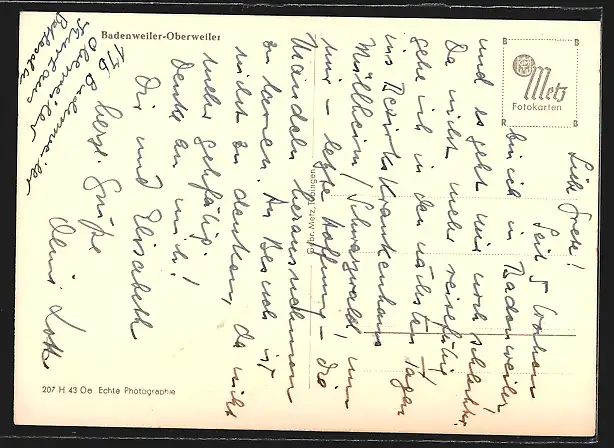 Badenweiler-Oberweiler
B B
Metz
Fotokarten
R B
Liebe Grete!
Seit 5 Wochen
bin ich in Badenweiler
und es geht mir noch schlechter.
Da nicht mehr reisefähig
gehe ich in den nächsten Tagen
ins Bezirkskrankenhaus
Müllheim/Schwarzwald, um
mir – letzte Hoffnung – die
Mandeln herausnehmen
zu lassen. An Besuch ist
nicht zu denken, da nicht
mehr gehfähig.
Denke an mich!
Dir und Elisabeth
herzl. Grüße
Deine Lotte
17b Badenweiler
Oberweiler
Kurhaus
Gebr. Metz, Tübingen
207 H 43 Oe Echte Photographie